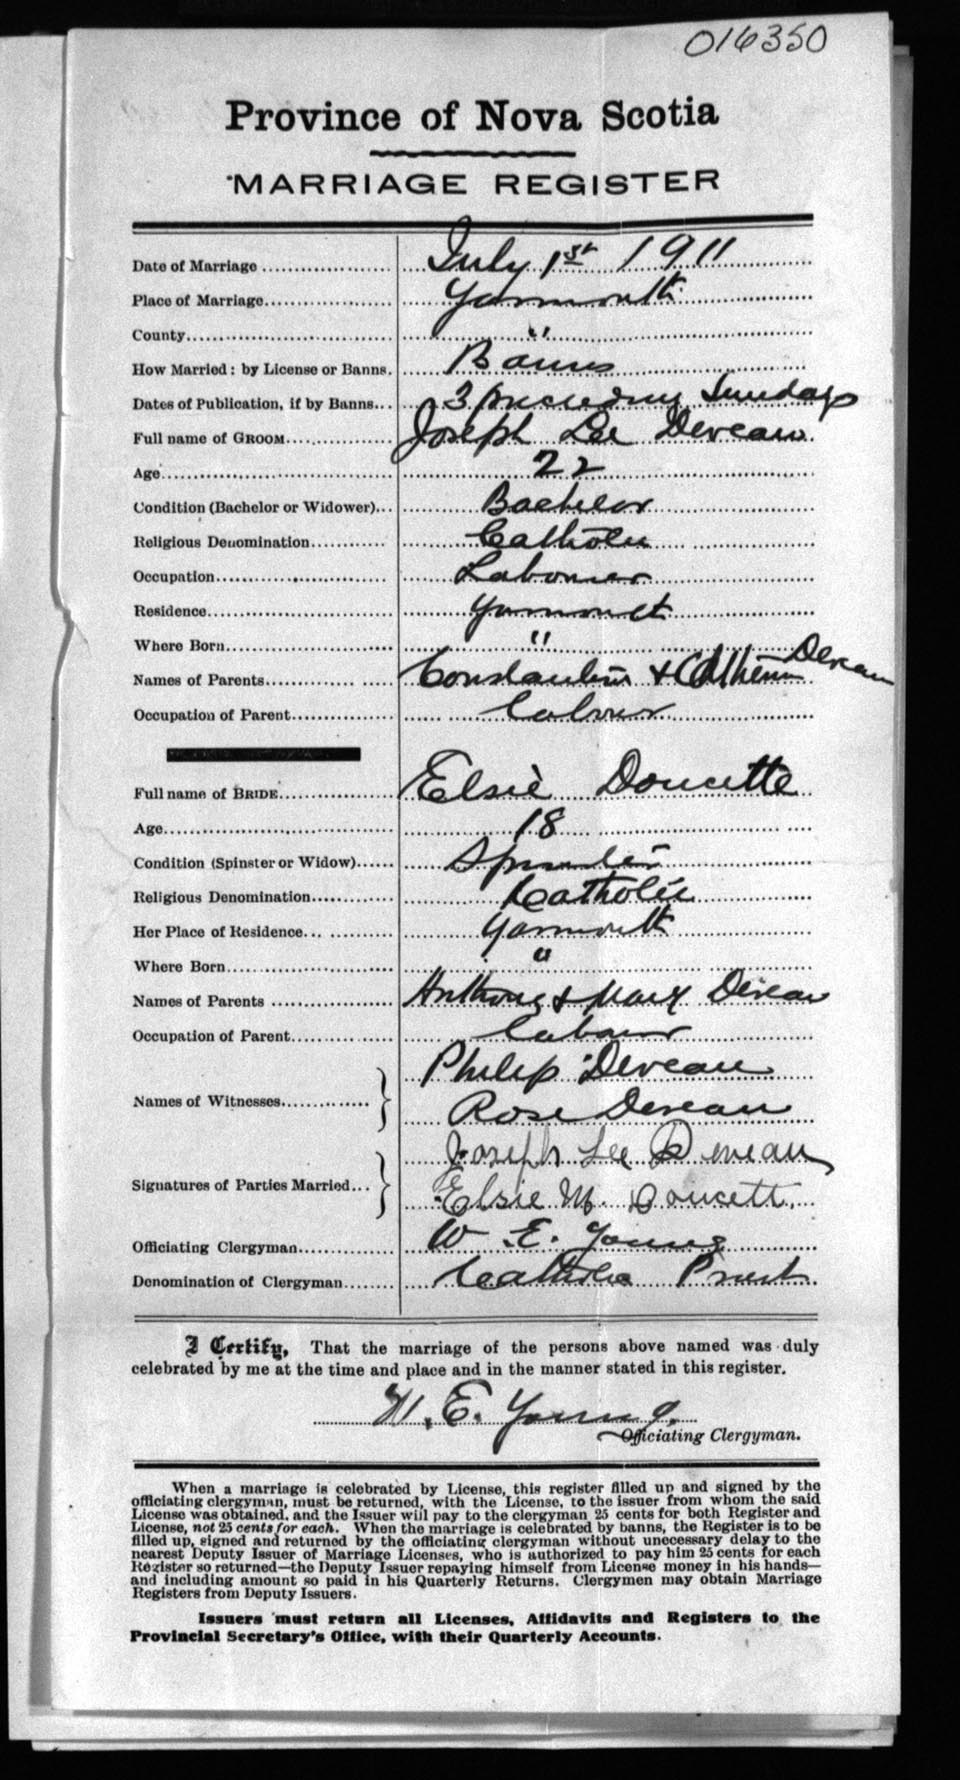 016350
Province of Nova Scotia
MARRIAGE REGISTER
Date of Marriage July 1st 1911
Place of Marriage Yarmouth
County "
How Married: by License or Banns. Banns
Dates of Publication, if by Banns 3 preceding Sundays
Full name of GROOM Joseph Lee Deveau
Age 22
Condition (Bachelor or Widower) Bachelor
Religious Denomination Catholic
Occupation Labourer
Residence Yarmouth
Where Born "
Names of Parents Constantin + Deveau
Occupation of Parent Labour
Full name of BRIDE Elsie Doucette
Age 18
Condition (Spinster or Widow) Spinster
Religious Denomination Catholic
Her Place of Residence Yarmouth
Where Born "
Names of Parents Anthony + Mary Deveau
Occupation of Parent Labour
Names of Witnesses Philip Deveau
Rose Deveau
Signatures of Parties Married Joseph Lee Deveau
Elsie M. Doucett.
Officiating Clergyman W. E. Young
Denomination of Clergyman Catholic Priest
I Certify, That the marriage of the persons above named was duly
celebrated by me at the time and place and in the manner stated in this register.
W. E. Young.
Officiating Clergyman.
When a marriage is celebrated by License, this register filled up and signed by the
officiating clergyman, must be returned, with the License, to the issuer from whom the said
License was obtained, and the Issuer will pay to the clergyman 25 cents for both Register and
License, not 25 cents for each. When the marriage is celebrated by banns, the Register is to be
filled up, signed and returned by the officiating clergyman without unecessary delay to the
nearest Deputy Issuer of Marriage Licenses, who is authorized to pay him 25 cents for each
Register so returned—the Deputy Issuer repaying himself from License money in his hands—
and including amount so paid in his Quarterly Returns. Clergymen may obtain Marriage
Registers from Deputy Issuers.
Issuers must return all Licenses, Affidavits and Registers to the
Provincial Secretary's Office, with their Quarterly Accounts.